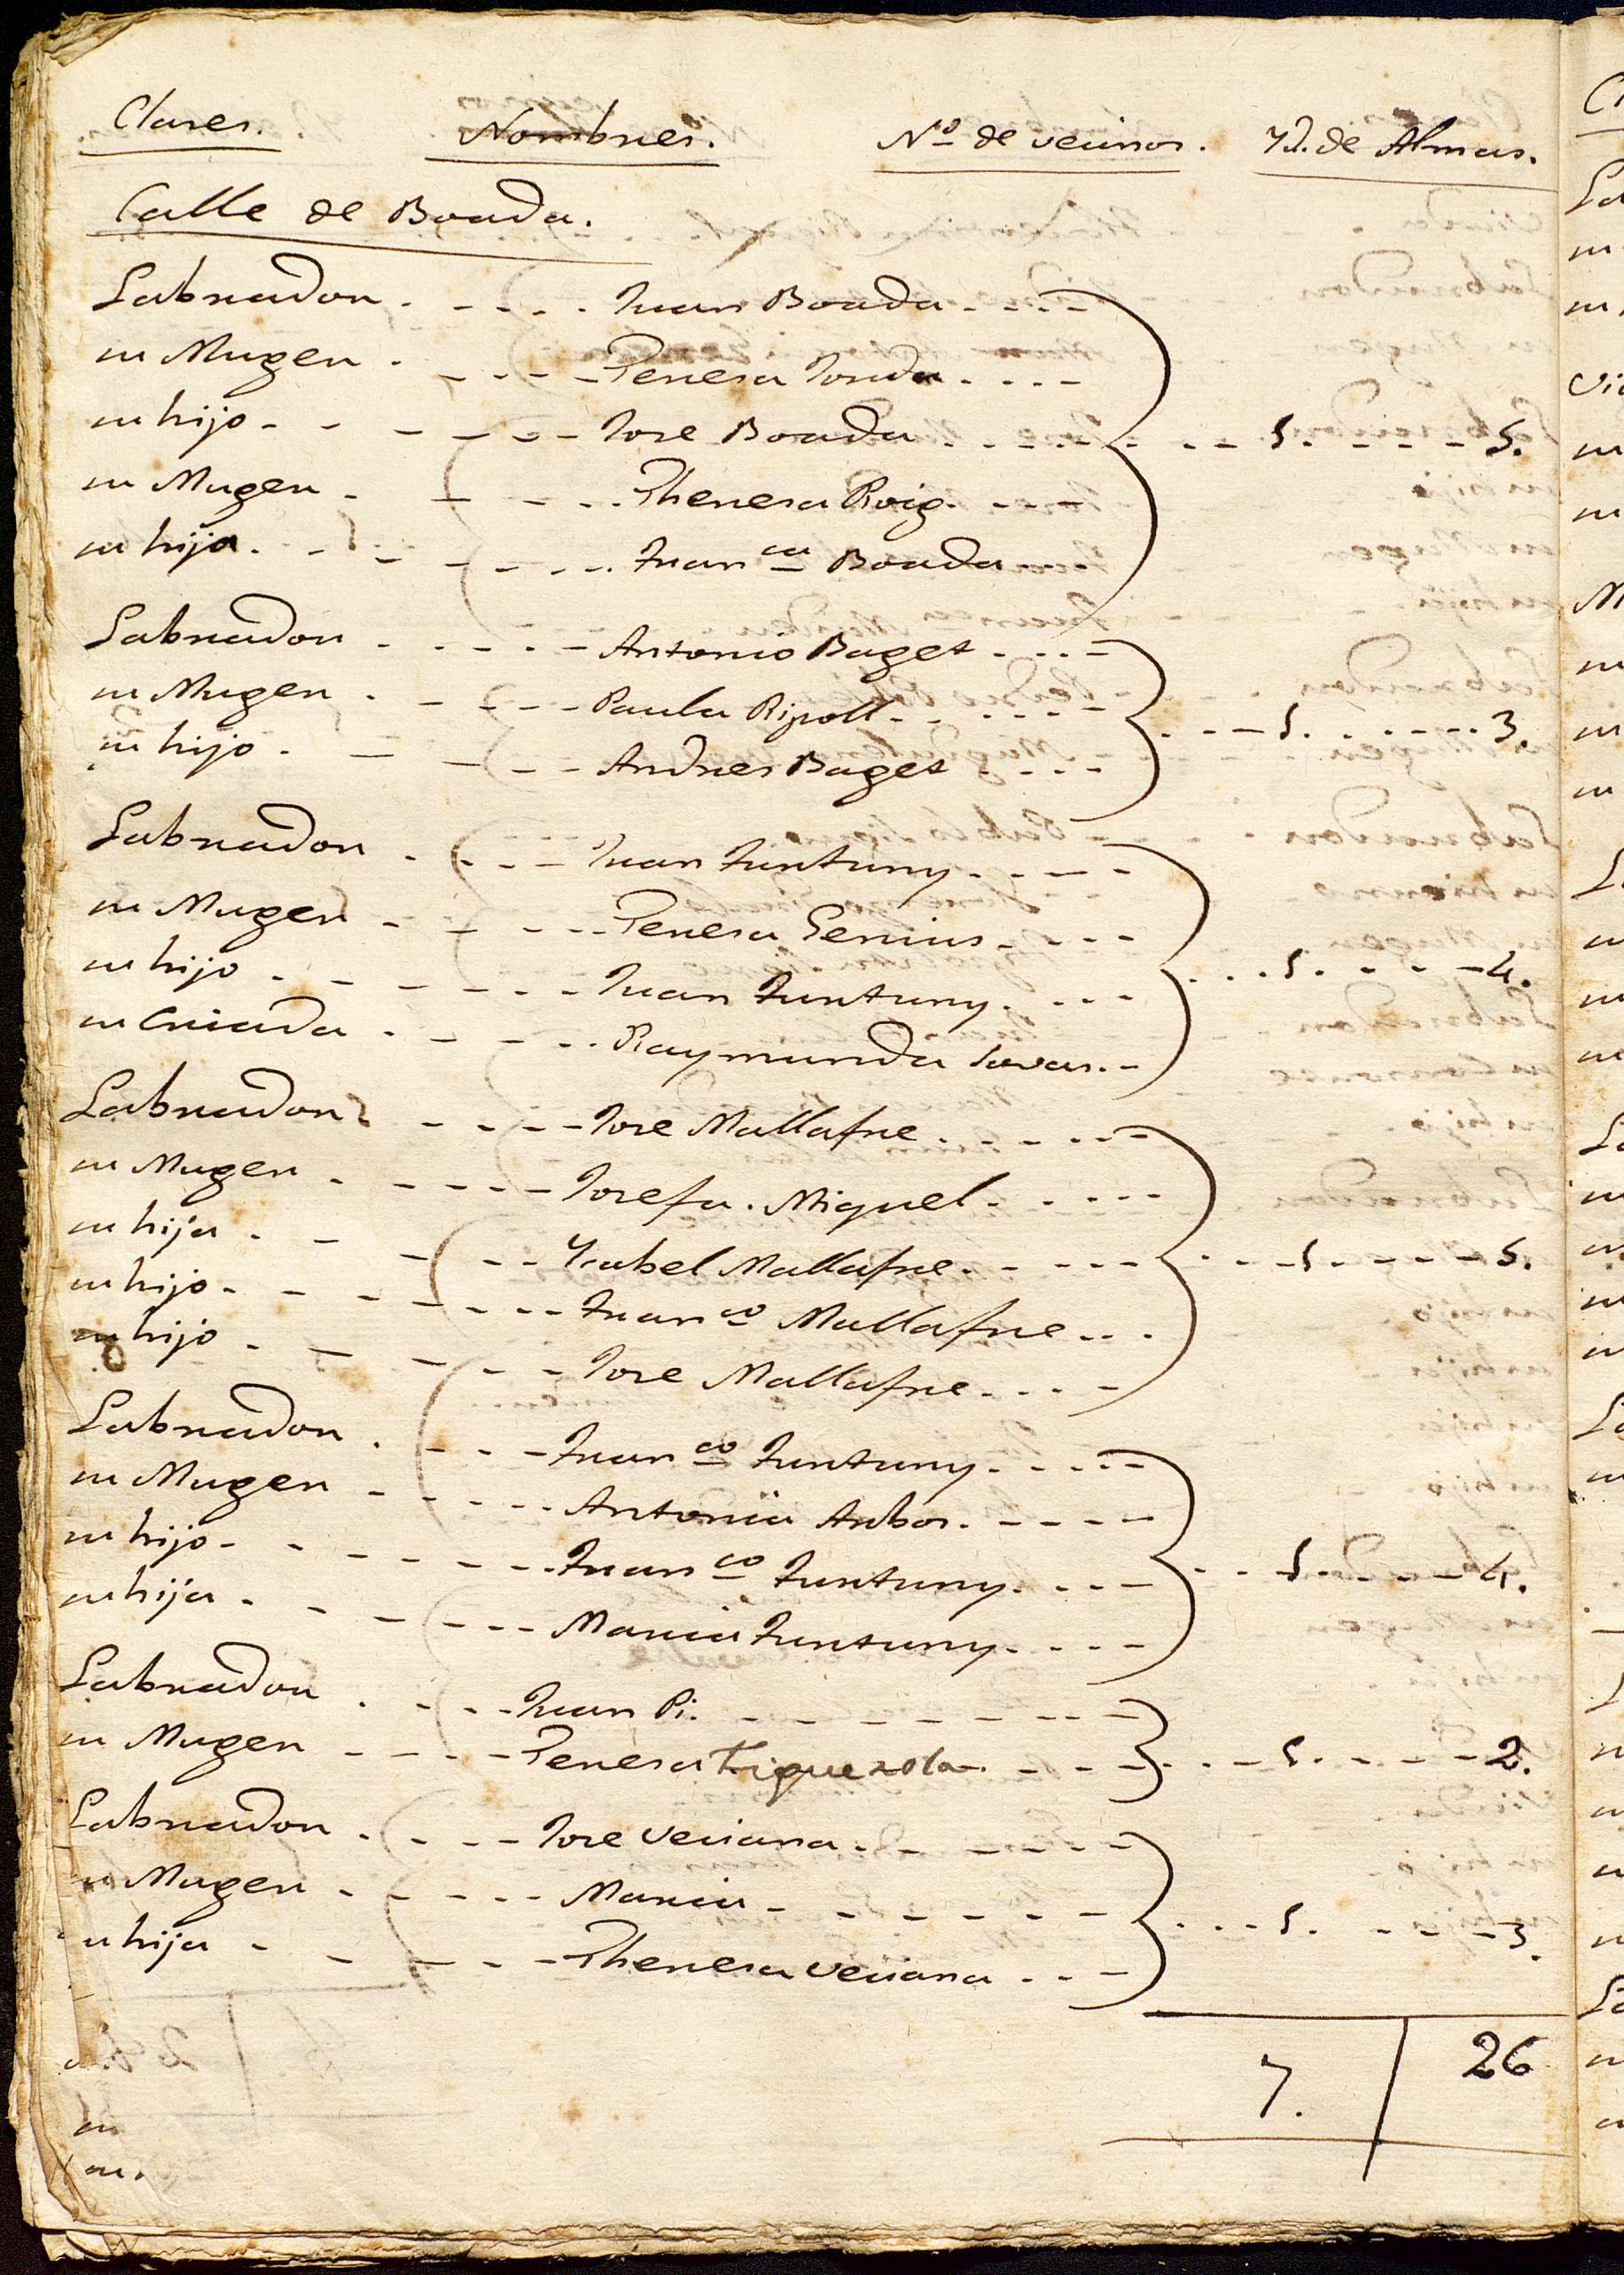 Clases. Nombres. Nº de vecinos. Yd. de Almas.
Calle de Boada.
Labrador - - - - Juan Boada - - - -
su Muger - - - - Teresa Jorda - - - -
su hijo - - - - Jose Boada - - - - 1. - - - - 5.
su Muger - - - - Theresa Roig - - - -
su hija - - - - Franca Boada
Labrador - - - - Antonio Baget - - - -
su Muger - - - - Paula Ripoll - - - - 1. - - - - 3.
su hijo - - - - Andres Baget - - - -
Labrador - - - - Juan Funtuny - - - -
su Muger - - - - Teresa Genius - - - -
su hijo - - - - Juan Funtuny - - - - 1. - - - - 4.
su Criada - - - - Raymunda
Labrador - - - - Jose Mallafre - - - -
su Muger - - - - Josefa Miquel - - - -
su hija - - - - Ysabel Mallafre - - - - 1. - - - - 5.
su hijo - - - - Franco Mallafre - - -
su hijo - - - - Jose Mallafre - - - -
Labrador - - - - Franco Funtuny - - - -
su Muger - - - - Antonia Arbos - - - -
su hijo - - - - Franco Funtuny - - - - 1. - - - - 4.
su hija - - - - Maria Funtuny - - - -
Labrador - - - - Juan Pi. - - - -
su Muger - - - - Teresa Figuerola - - - - 1. - - - - 2.
Labrador - - - - Jose Veciana - - - -
su Muger - - - - Maria - - - - 1. - - - - 3.
su hija - - - - Theresa Veciana - - -
7. 26